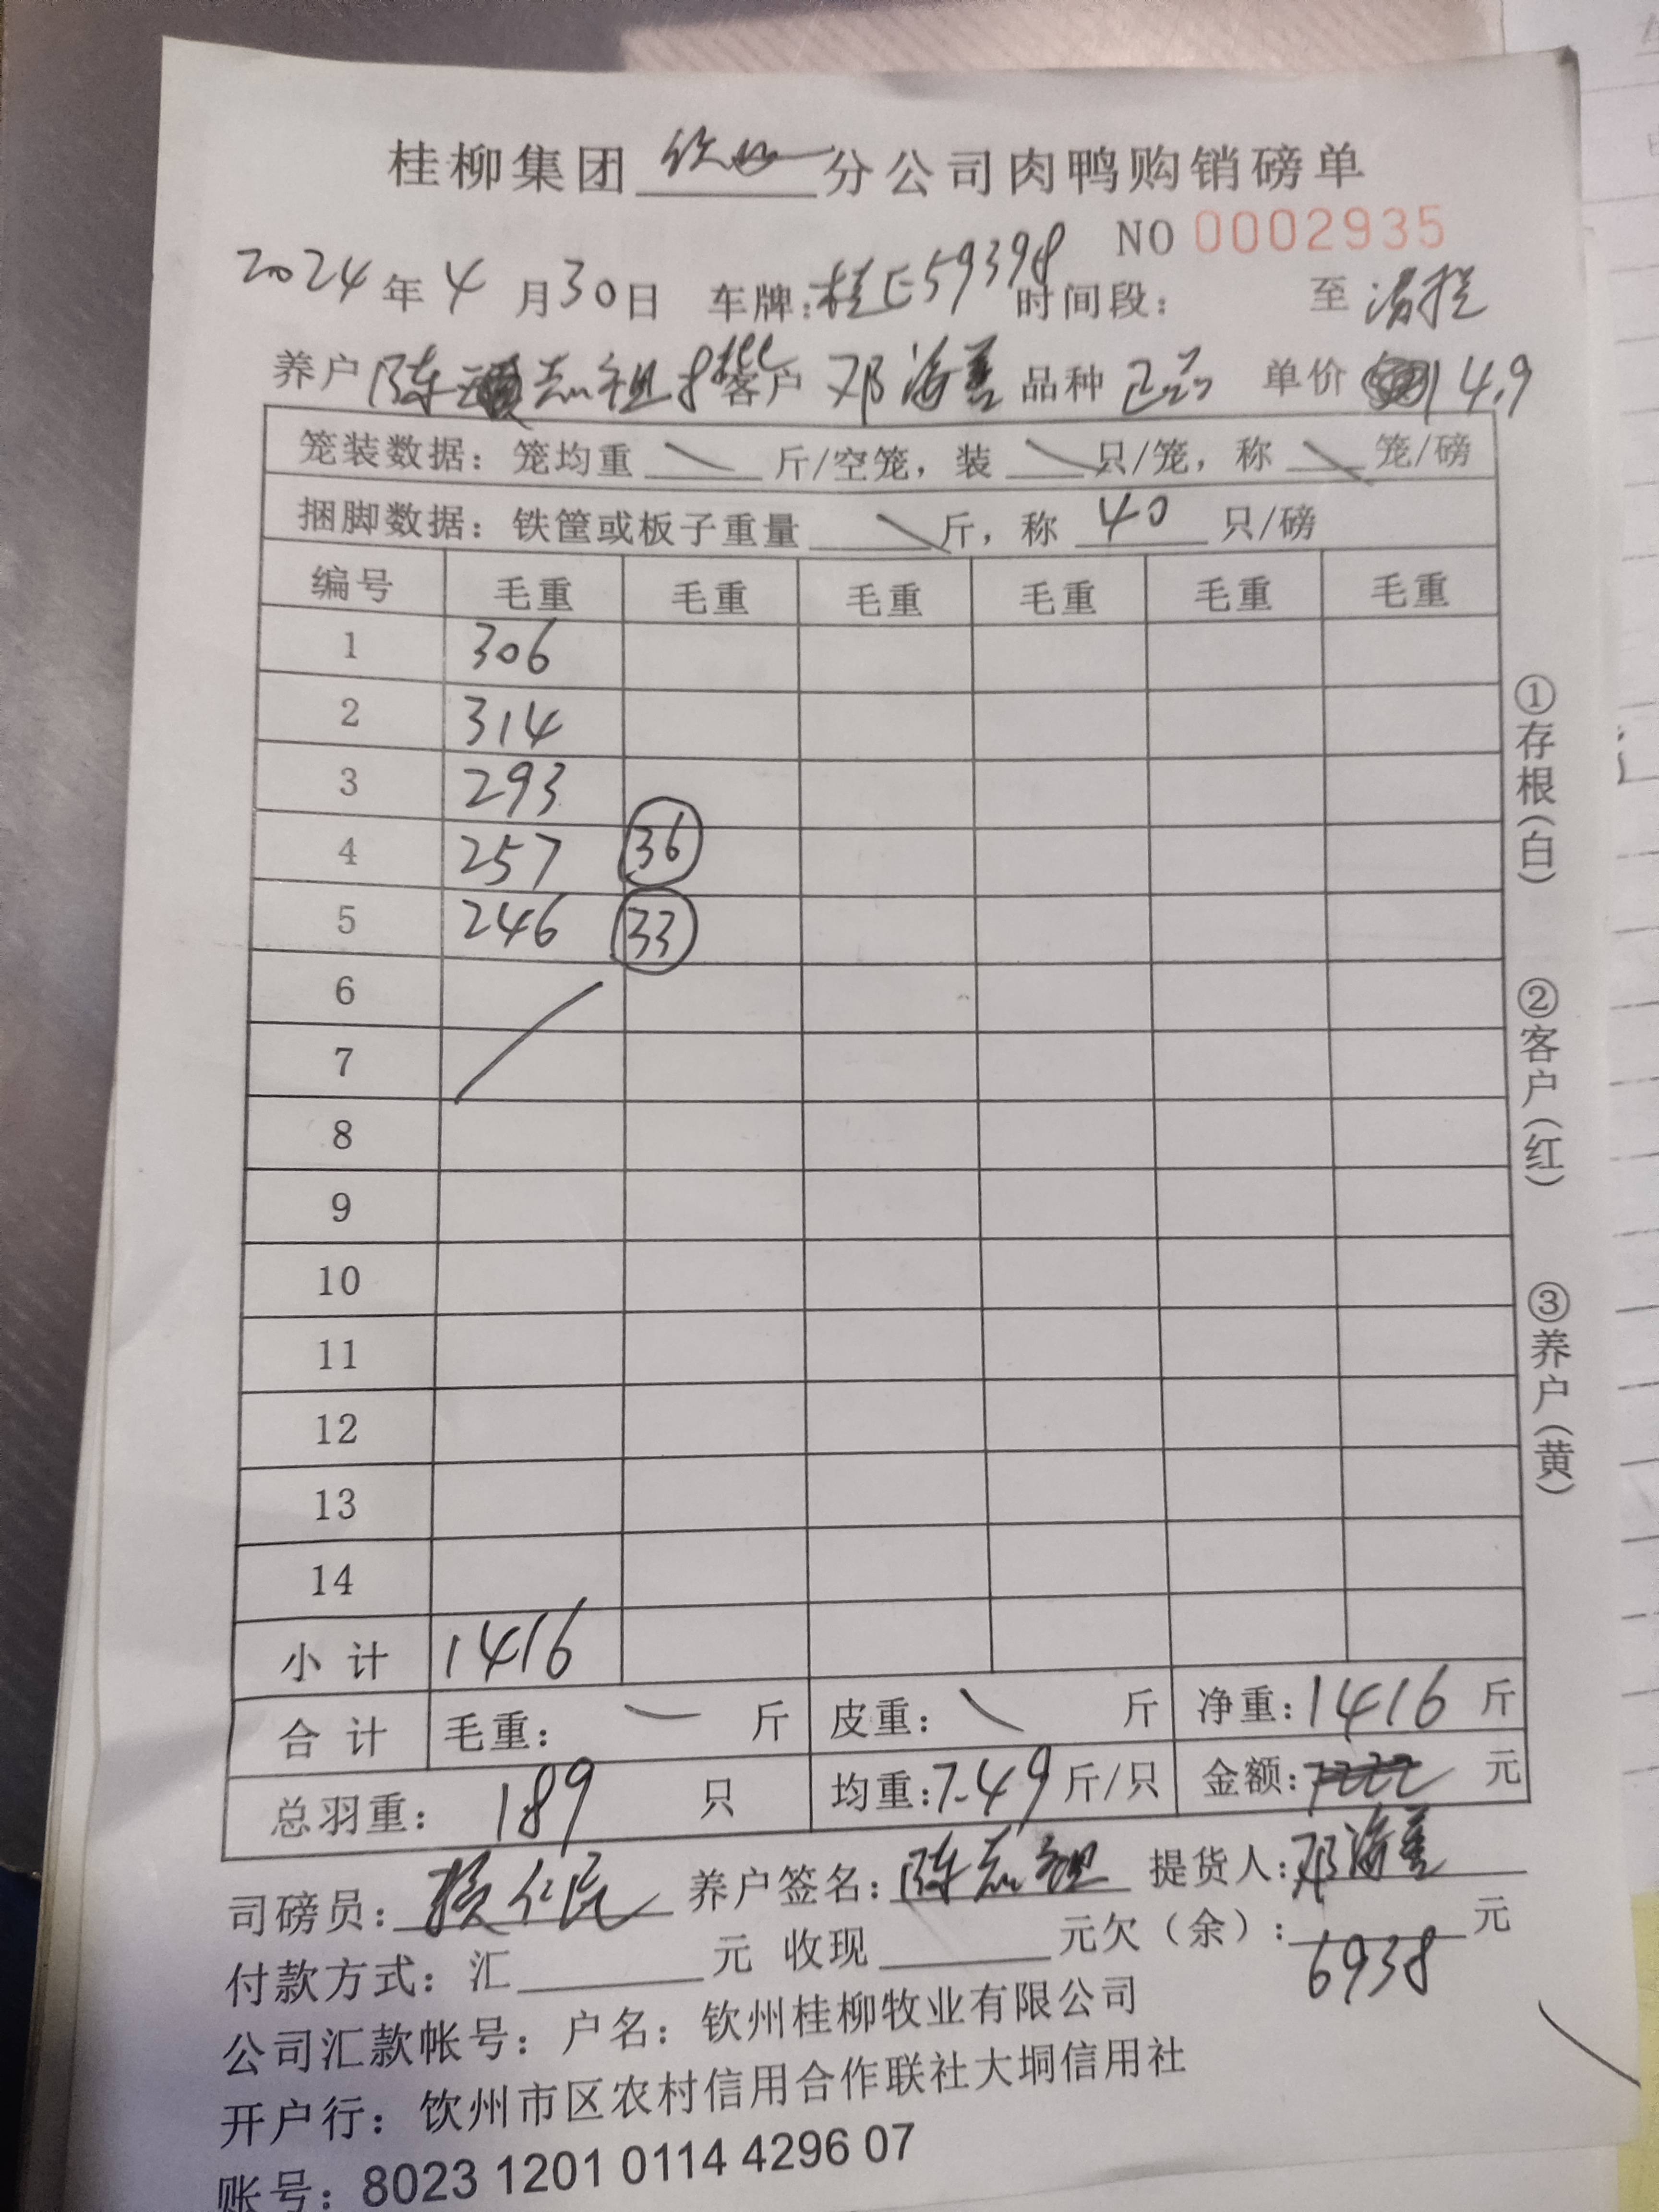 桂柳集团 钦州 分公司肉鸭购销磅单
NO 0002935
2024年4月30日 车牌:桂E59398 时间段: 至
养户 陈志祖 客户 邓海 品种 正品 单价 4.9
笼装数据:笼均重 斤/空笼,装 只/笼,称 笼/磅
捆脚数据:铁筐或板子重量 斤,称 40 只/磅
编号 毛重 毛重 毛重 毛重 毛重 毛重
1 306
2 314
3 293
4 257 36
5 246 33
6
7
8
9
10
11
12
13
14
小计 1416
合计 毛重: 斤 皮重: 斤 净重:1416 斤
总羽重: 189 只 均重:7.49 斤/只 金额: 元
司磅员: 仁民 养户签名:陈志祖 提货人:邓海
付款方式:汇 元 收现 元欠(余): 6938 元
公司汇款帐号:户名:钦州桂柳牧业有限公司
开户行:钦州市区农村信用合作联社大垌信用社
账号:8023 1201 0114 4296 07
①存根(白)
②客户(红)
③养户(黄)